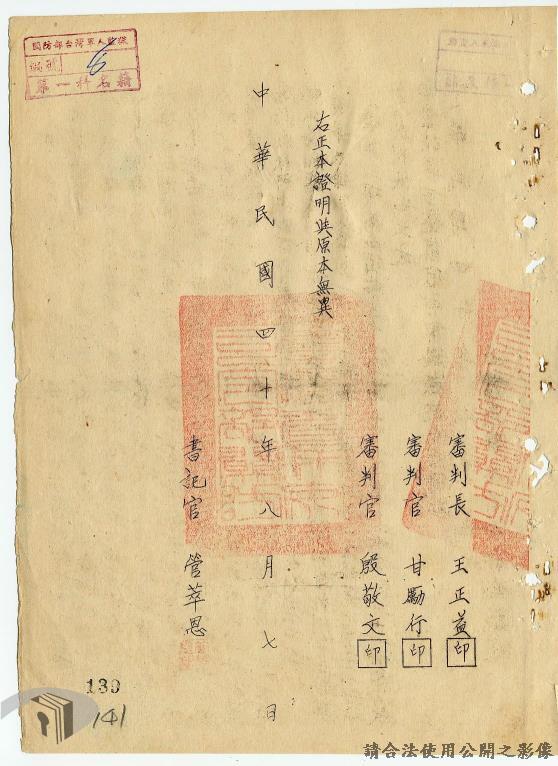 審判長 王正益 印
審判官 甘勵行 印
審判官 殷敬文 印
右正本證明與原本無異
中華民國四十年八月七日
書記官 管萃恩
國防部台灣軍人監獄
編號 6
第一科名籍
139
141
請合法使用公開之影像